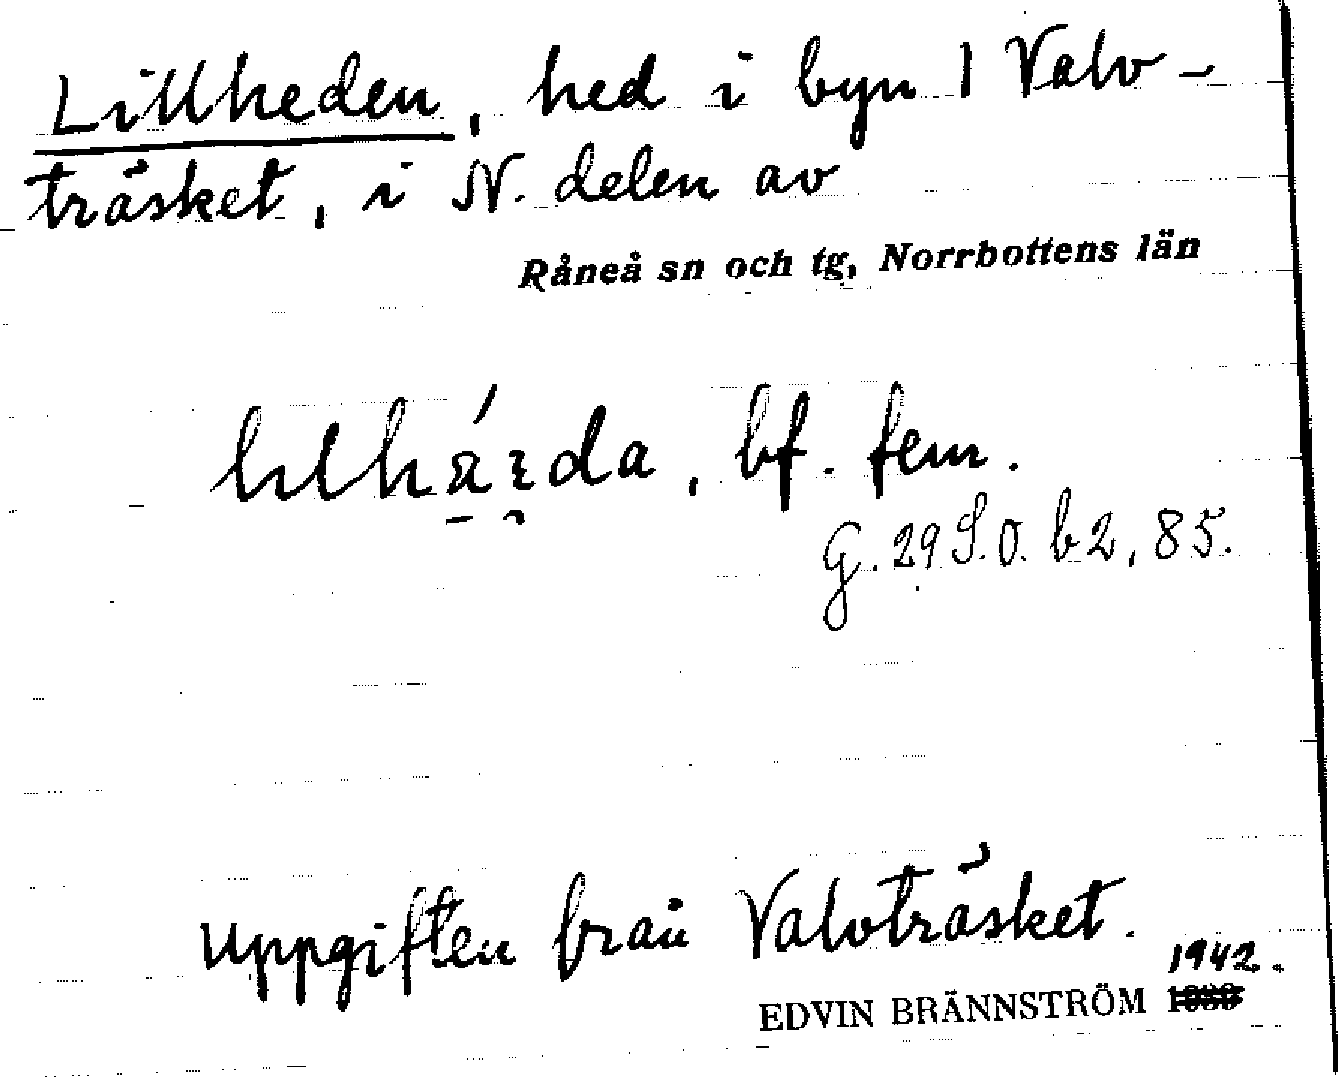 Lillheden, hed i byn 1 Valv-
träsket, i N. delen av
Råneå sn och tg, Norrbottens län
bf. fem.
G. 29 S.O. b2, 85.
Uppgiften från Valvträsket.
1942.
EDVIN BRÄNNSTRÖM